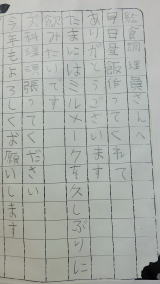 給食調理員さんへ
毎日昼飯作ってくれて
ありがとうございます
たまにはミルメークを久しぶりに
飲みたいです
お料理頑張ってください
今年もよろしくお願いします